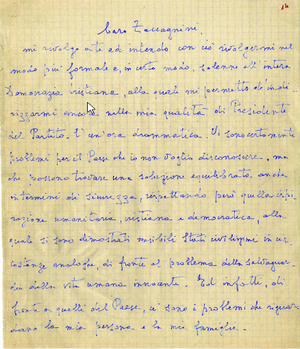 16
Caro Zaccagnini,
mi rivolgo a te ed intendo con ciò rivolgermi nel
modo più formale e, in certo modo, solenne all'intera
Democrazia cristiana, alla quale mi permetto d'indi
rizzarmi ancora nella mia qualità di Presidente
del Partito. È un'ora drammatica. Vi sono certamente
problemi per il Paese che io non voglio disconoscere, ma
che possono trovare una soluzione equilibrata anche
in termini di sicurezza, rispettando però quella ispi
razione umanitaria, cristiana e democratica, alla
quale si sono dimostrati sensibili Stati civilissimi in cir
costanze analoghe, di fronte al problema della salvaguar
dia della vita umana innocente. Ed infatti, di
fronte a quelli del Paese, ci sono i problemi che riguar
dano la mia persona e la mia famiglia.